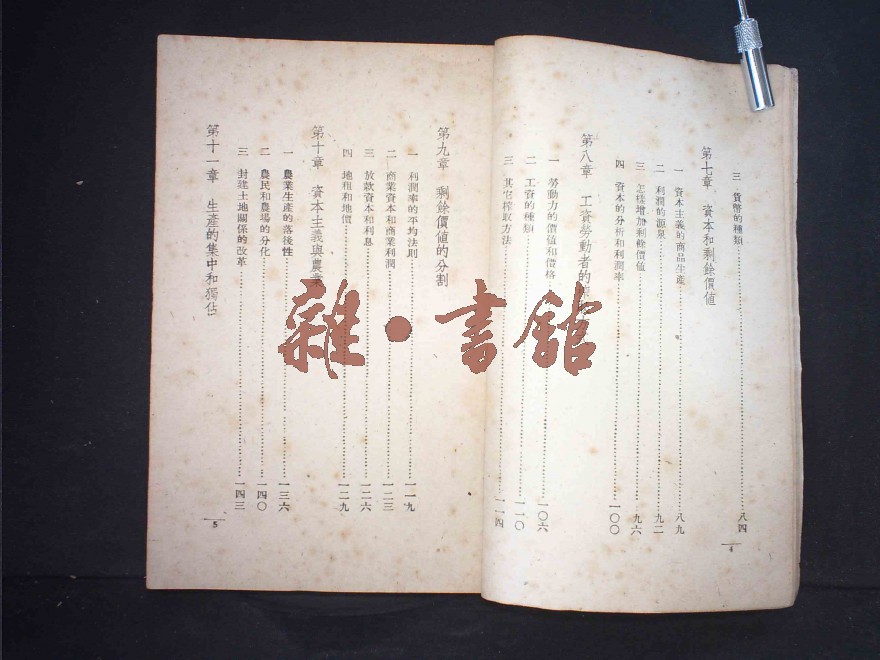 三 貨幣的種類……八四
第七章 資本和剩餘價値
一 資本主義的商品生產……八九
二 利潤的源泉……九二
三 怎樣增加剩餘價値……九六
四 資本的分析和利潤率……一〇〇
第八章 工資勞動者的
一 勞動力的價値和價格……一〇六
二 工資的種類……一一〇
三 其它榨取方法……一一四
4
第九章 剩餘價値的分割
一 利潤率的平均法則……一一九
二 商業資本和商業利潤……一二三
三 放款資本和利息……一二六
四 地租和地價……一二九
第十章 資本主義與農業
一 農業生產的落後性……一三六
二 農民和農場的分化……一四〇
三 封建土地關係的改革……一四三
第十一章 生產的集中和獨佔
5
雜·書館